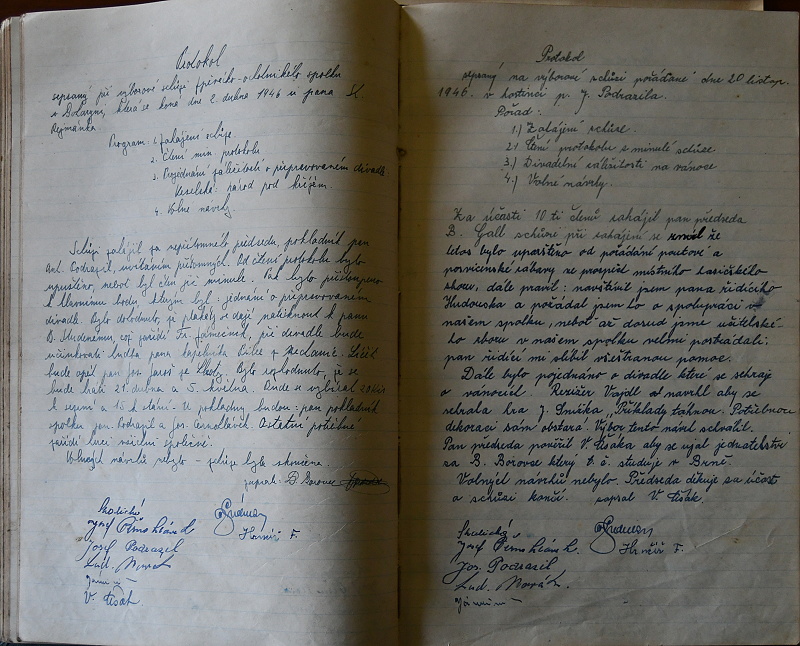 Protokol
sepsaný při výborové schůzi
v která se koná dne 2. dubna 1946 u pana
Program: 1. Zahájení schůze.
2. Čtení min. protokolu
3. Projednání záležitostí o připravovaném divadle
národ pod křížem.
4. Volné návrhy
Schůzi zahájil za nepřítomného předsedu, pokladník pan
Ant. Podrazil, uvítáním přítomných. Od čtení protokolu bylo
upuštěno, neboť byl čten při minulé. Pak bylo přistoupeno
k hlavnímu bodu, kterým byl: jednání o připravovaném
divadle. Bylo dohodnuto, že plakáty se dají natisknout k panu
což zařídí Fr. při divadle bude
účinkovati hudba pana kapelníka z
bude opět pan Jos. Jaroš ze Bylo rozhodnuto, že se
bude hráti 21. dubna a 5. května.
k sezení a 15 k stání. U pokladny budou: pan pokladník
spolku pan Podrazil a Jos. Ostatní potřebné
zařídí herci společně.
Volných návrhů nebylo schůze byla skončena.
zapsal: B. Borovec
Josef Podrazil
Lud. Novák
V. Tišák.
Protokol
sepsaný na výborové schůzi pořádané dne 20 listop.
1946. v hostinci p. J. Podrazila.
Pořad:
1.) Zahájení schůze.
2.) Čtení protokolu s minulé schůze
3.) Divadelní záležitosti na vánoce
4.) Volné návrhy.
Za účasti 10 ti členů zahájil pan předseda
B. Gall schůzi při zahájení se zmínil že
letos bylo upuštěno od pořádání pouťové a
posvícenské zábavy ve prospěch místního hasičského
sboru, dále pravil: navštívil jsem pana řídícího
Hudouska a požádal jsem ho o spolupráci v
našem spolku, neboť až dosud jsme učitelské-
ho sboru v našem spolku velmi postrádali;
pan řídící mi slíbil všestranou pomoc.
Dále bylo pojednáno o divadle které se sehraje
o vánocích. Režisér Vajdl navrhl aby se
sehrála hra J. Smíčka „Příklady táhnou. Potřebnou
dekoraci sám obstará. Výbor tento návrh schválil.
Pan předseda pověřil V. Tišáka aby se ujal jednatelství
za B. Borovse který t. č. studuje v Brně.
Volných návrhů nebylo. Předseda děkuje za účast
a schůzi končí. sepsal V. Tišák.
Jos. Podrazil
Lud. Novák.